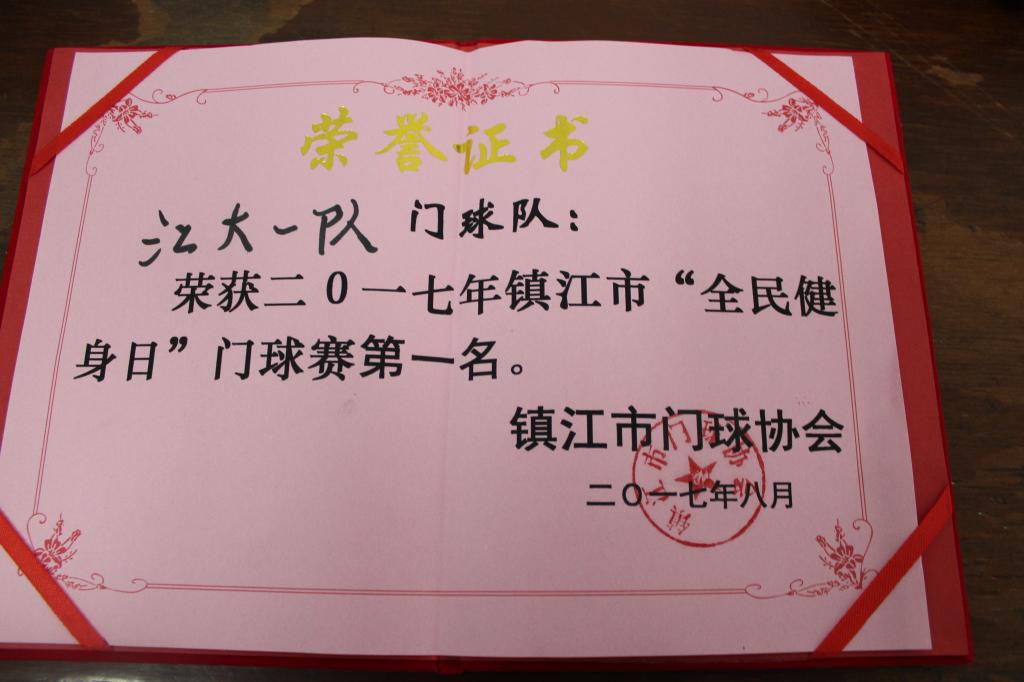 荣誉证书
江大一队 门球队：
荣获二0一七年镇江市“全民健
身日”门球赛第一名。
镇江市门球协会
二〇一七年八月
镇江市门球协会